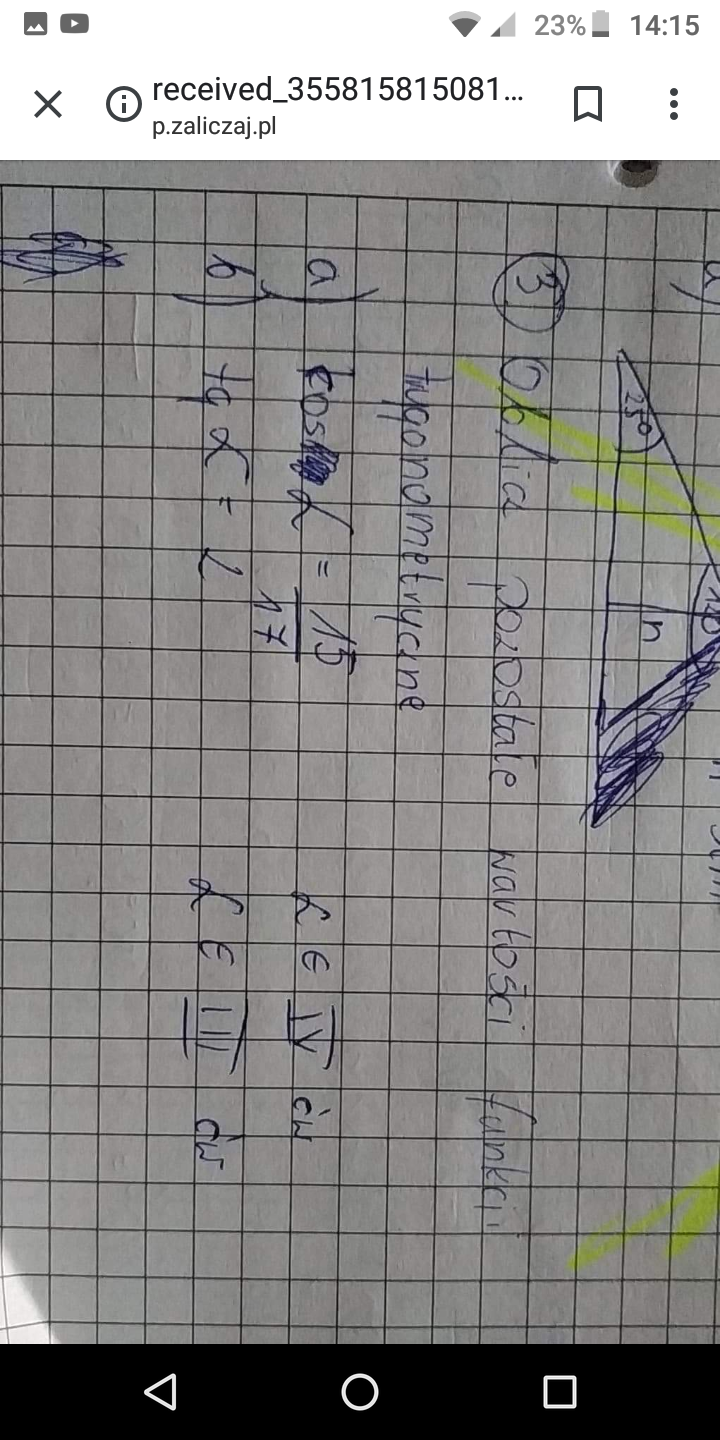 23% 14:15
received_355815815081...
p.zaliczaj.pl
25°
h
3 Oblicz pozostałe wartości funkcji
trygonometryczne
a) cos α = 15/17 α ∈ IV ćw
b) tg α = 2 α ∈ III ćw